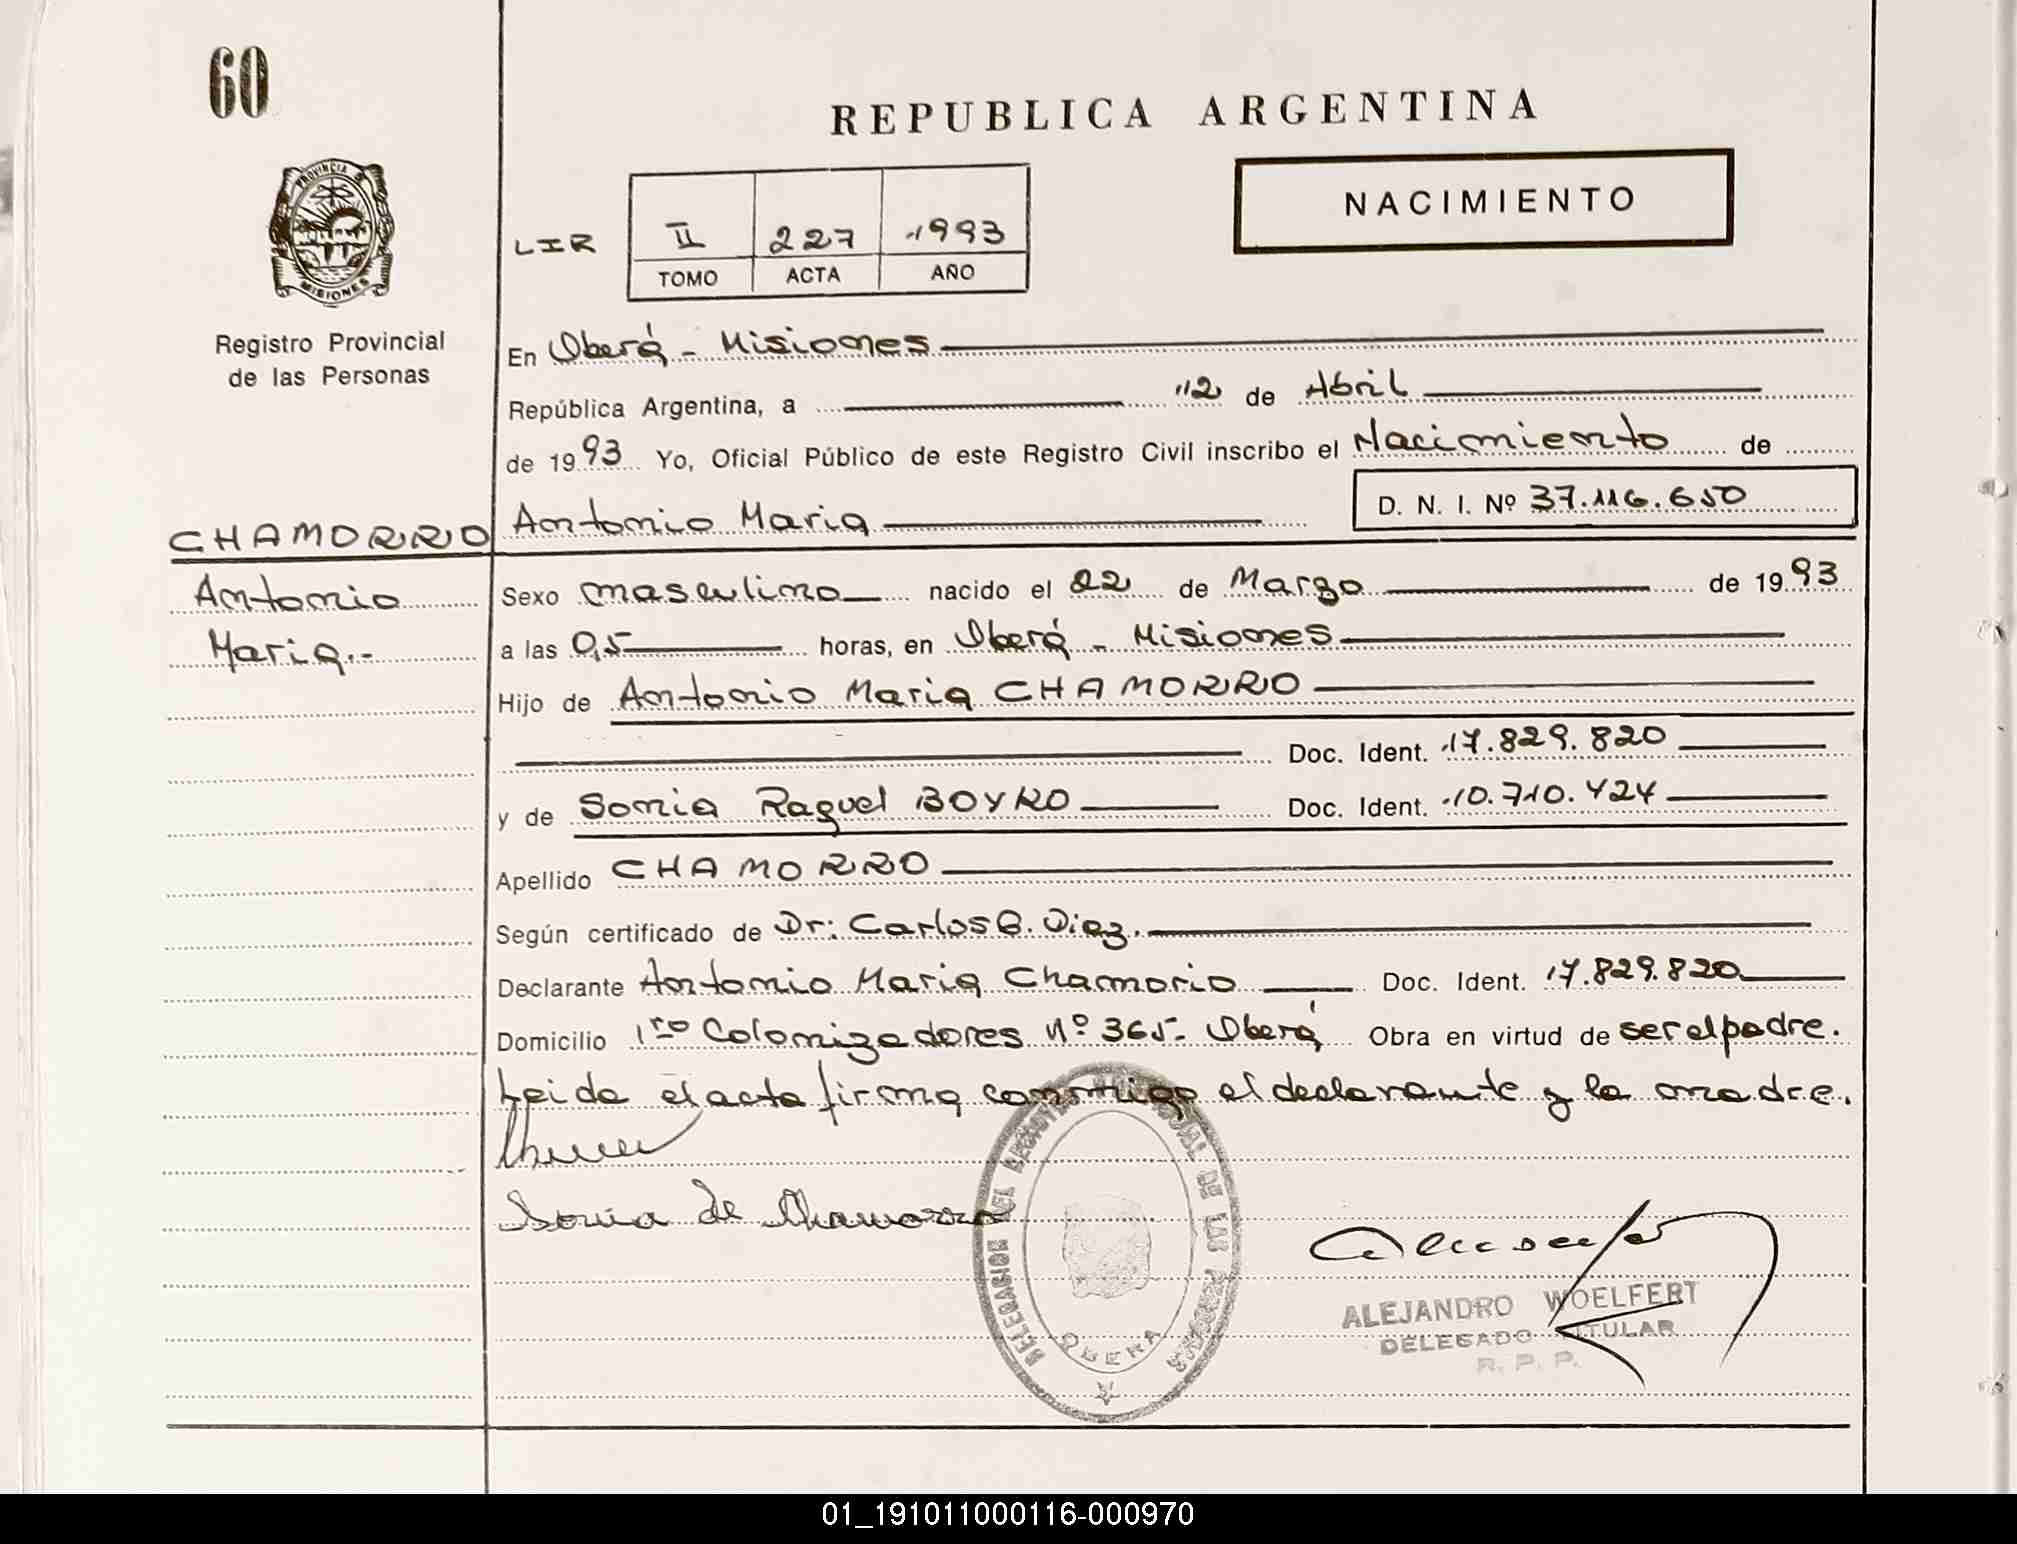 60
REPUBLICA ARGENTINA
PROVINCIA DE MISIONES
NACIMIENTO
LIR II 227 1993
TOMO ACTA AÑO
Registro Provincial
de las Personas
En Oberá - Misiones
República Argentina, a 12 de Abril
de 1993 Yo, Oficial Público de este Registro Civil inscribo el Nacimiento de
Antonio Maria D. N. I. Nº 37.116.650
CHAMORRO
Antonio
Maria.-
Sexo masculino nacido el 22 de Marzo de 1993
a las 0,5 horas, en Oberá - Misiones
Hijo de Antonio Maria CHAMORRO
Doc. Ident. 17.829.820
y de Sonia Raquel BOYKO Doc. Ident. 10.710.424
Apellido CHAMORRO
Según certificado de Dr: Carlos B. Diez.
Declarante Antonio Maria Chamorro Doc. Ident. 17.829.820
Domicilio 1ro Colonizadores Nº 365- Oberá Obra en virtud de ser el padre.
Leida el acta firma conmigo el declarante y la madre.
Sonia de Chamorro
DELEGACION DEL REGISTRO PROVINCIAL DE LAS PERSONAS
OBERA
ALEJANDRO WOELFERT
DELEGADO TITULAR
R. P. P.
01_191011000116-000970